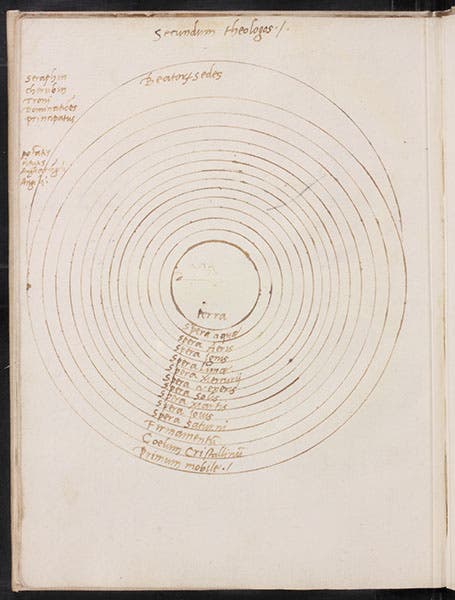 Secundum theologos ./.
Beatorum sedes
Seraphin
cherubin
Troni
Dominationes
principatus
potestates
Angeli
terra
Spera aquae
Spera aeris
Spera ignis
Spera Lunae
Spera Mercurij
Spera veneris
Spera solis
Spera Martis
Spera Iovis
Spera Saturni
Firmamentu
Coelum Cristallinu
Primum mobile ./